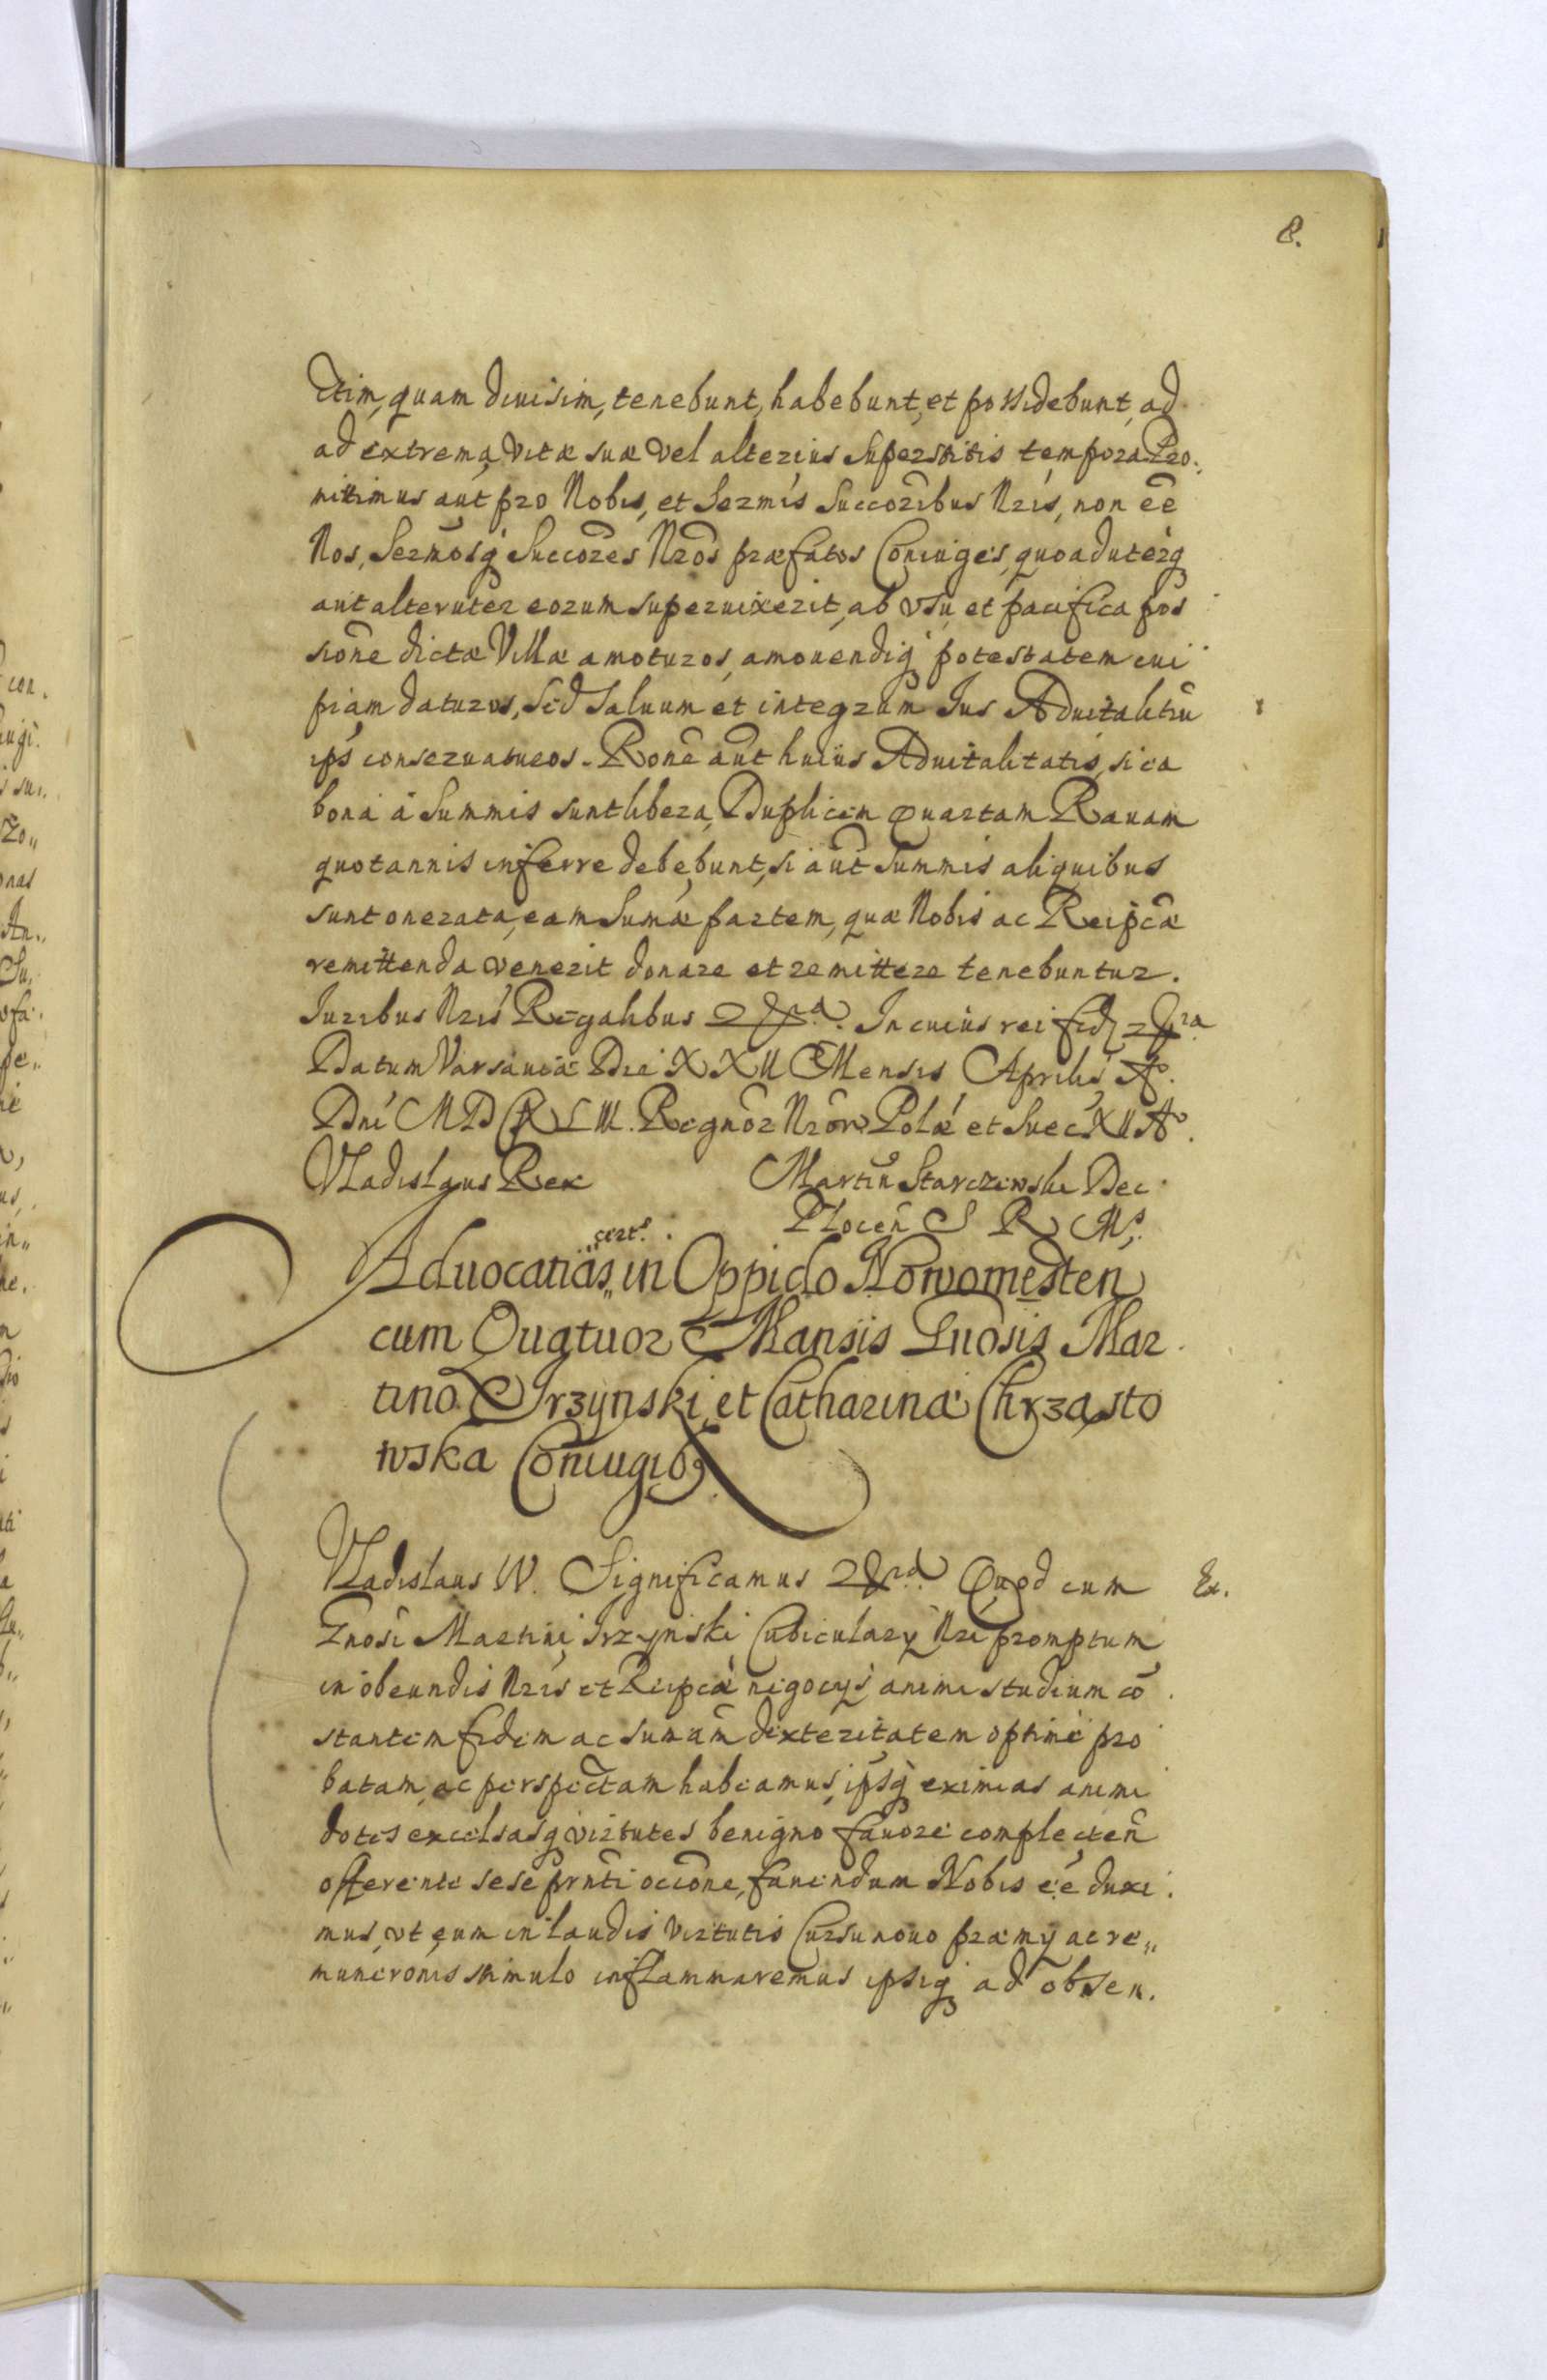 8.
ctim, quam diuisim, tenebunt, habebunt, et possidebunt, ad
ad extrema vitæ suæ vel alterius superstitis tempora Pro.
mittimus aut pro Nobis, et Sermis Succoribus Nris, non ee
Nos, Sermosq Succores Nros præfatos Coniuges, quoad uterq
aut alteruter eorum superuixerit, ab vsu et pacifica pos
sione dictæ Villæ amoturos, amouendiq potestatem cui
piam daturos, Sed Saluum et integrum Ius Aduitalitiu
ips conseruaturos. Rone aut huius Aduitalitatis, si ea
bona a Summis sunt libera, Duplicem Quartam Rauam
quotannis inferre debebunt, si aut summis aliquibus
sunt onerata, eam Sumæ partem, quæ Nobis ac Reipcæ
remittenda venerit donare et remittere tenebuntur.
Iuribus Nris Regalibus In cuius rei fid
Datum Varsauiæ Die XXII Mensis Aprilis Ao.
Dni MDCXLIII. Regnor Nror Polæ et Suec XII Ao.
Vladislaus Rex Martin Starczewski Dec
Plocen S R Ms
cert.
Aduocatiæ, in Oppido Nowomesten
cum Quatuor Mansis Gnosis Mar
tino Irzynski, et Catharinæ Chrząsto
wska Coniugib9
Vladislaus IV. Significamus Quod cum
Ex.
Gnosi Martini Irzynski Cubiculary Nri promptum
in obeundis Nris et Reipcæ negocys animi studium co
stantem fidem ac sumam dexteritatem optime pro
batam, ac perspectam habeamus, ipsq eximias animi
dotes excelsasq virtutes benigno fauore complecten
offerente sese prnti occione, faciendum Nobis ee duxi
mus, vt eum in laudis virtutis Cursu nouo præmy ac re„
muneronis stimulo inflammaremus ipsiq ad obseq.